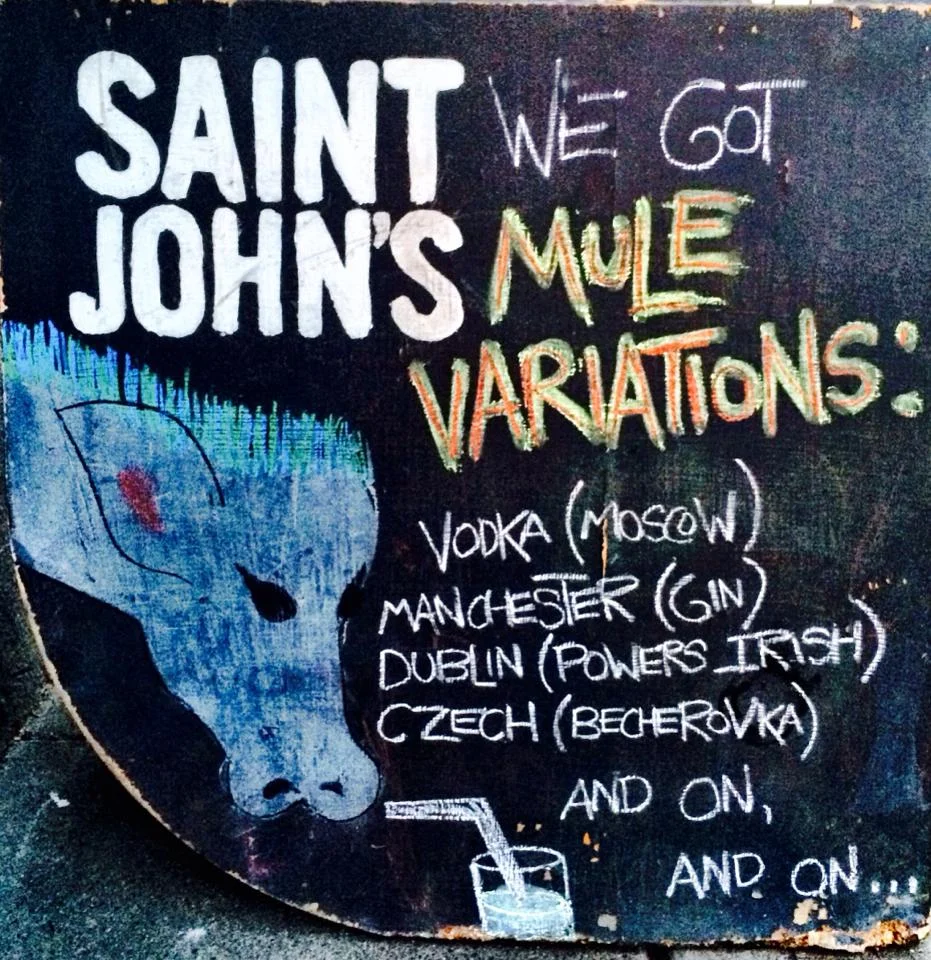 SAINT
JOHN'S
WE GOT
MULE
VARIATIONS:
VODKA (MOSCOW)
MANCHESTER (GIN)
DUBLIN (POWERS IRISH)
CZECH (BECHEROVKA)
AND ON,
AND ON...